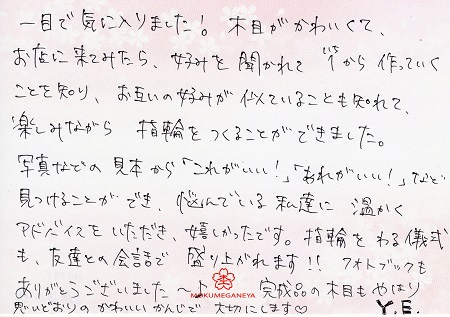 一目で気に入りました! 木目がかわいくて、
お店に来てみたら、好みを聞かれて 1から作っていく
ことを知り、お互いの好みが似ていることも知れて、
楽しみながら 指輪をつくることができました。
写真などの見本から「これがいい!」「あれがいい!」など
見つけることができ、悩んでいる私達に 温かく
アドバイスをいただき、嬉しかったです。指輪をわる儀式
も、友達との会話で 盛り上がれます!! フォトブックも
ありがとうございました〜♪ 完成品の木目もやはり
思いどおりのかわいいかんじで 大切にします♡ Y.E.
MOKUMEGANEYA